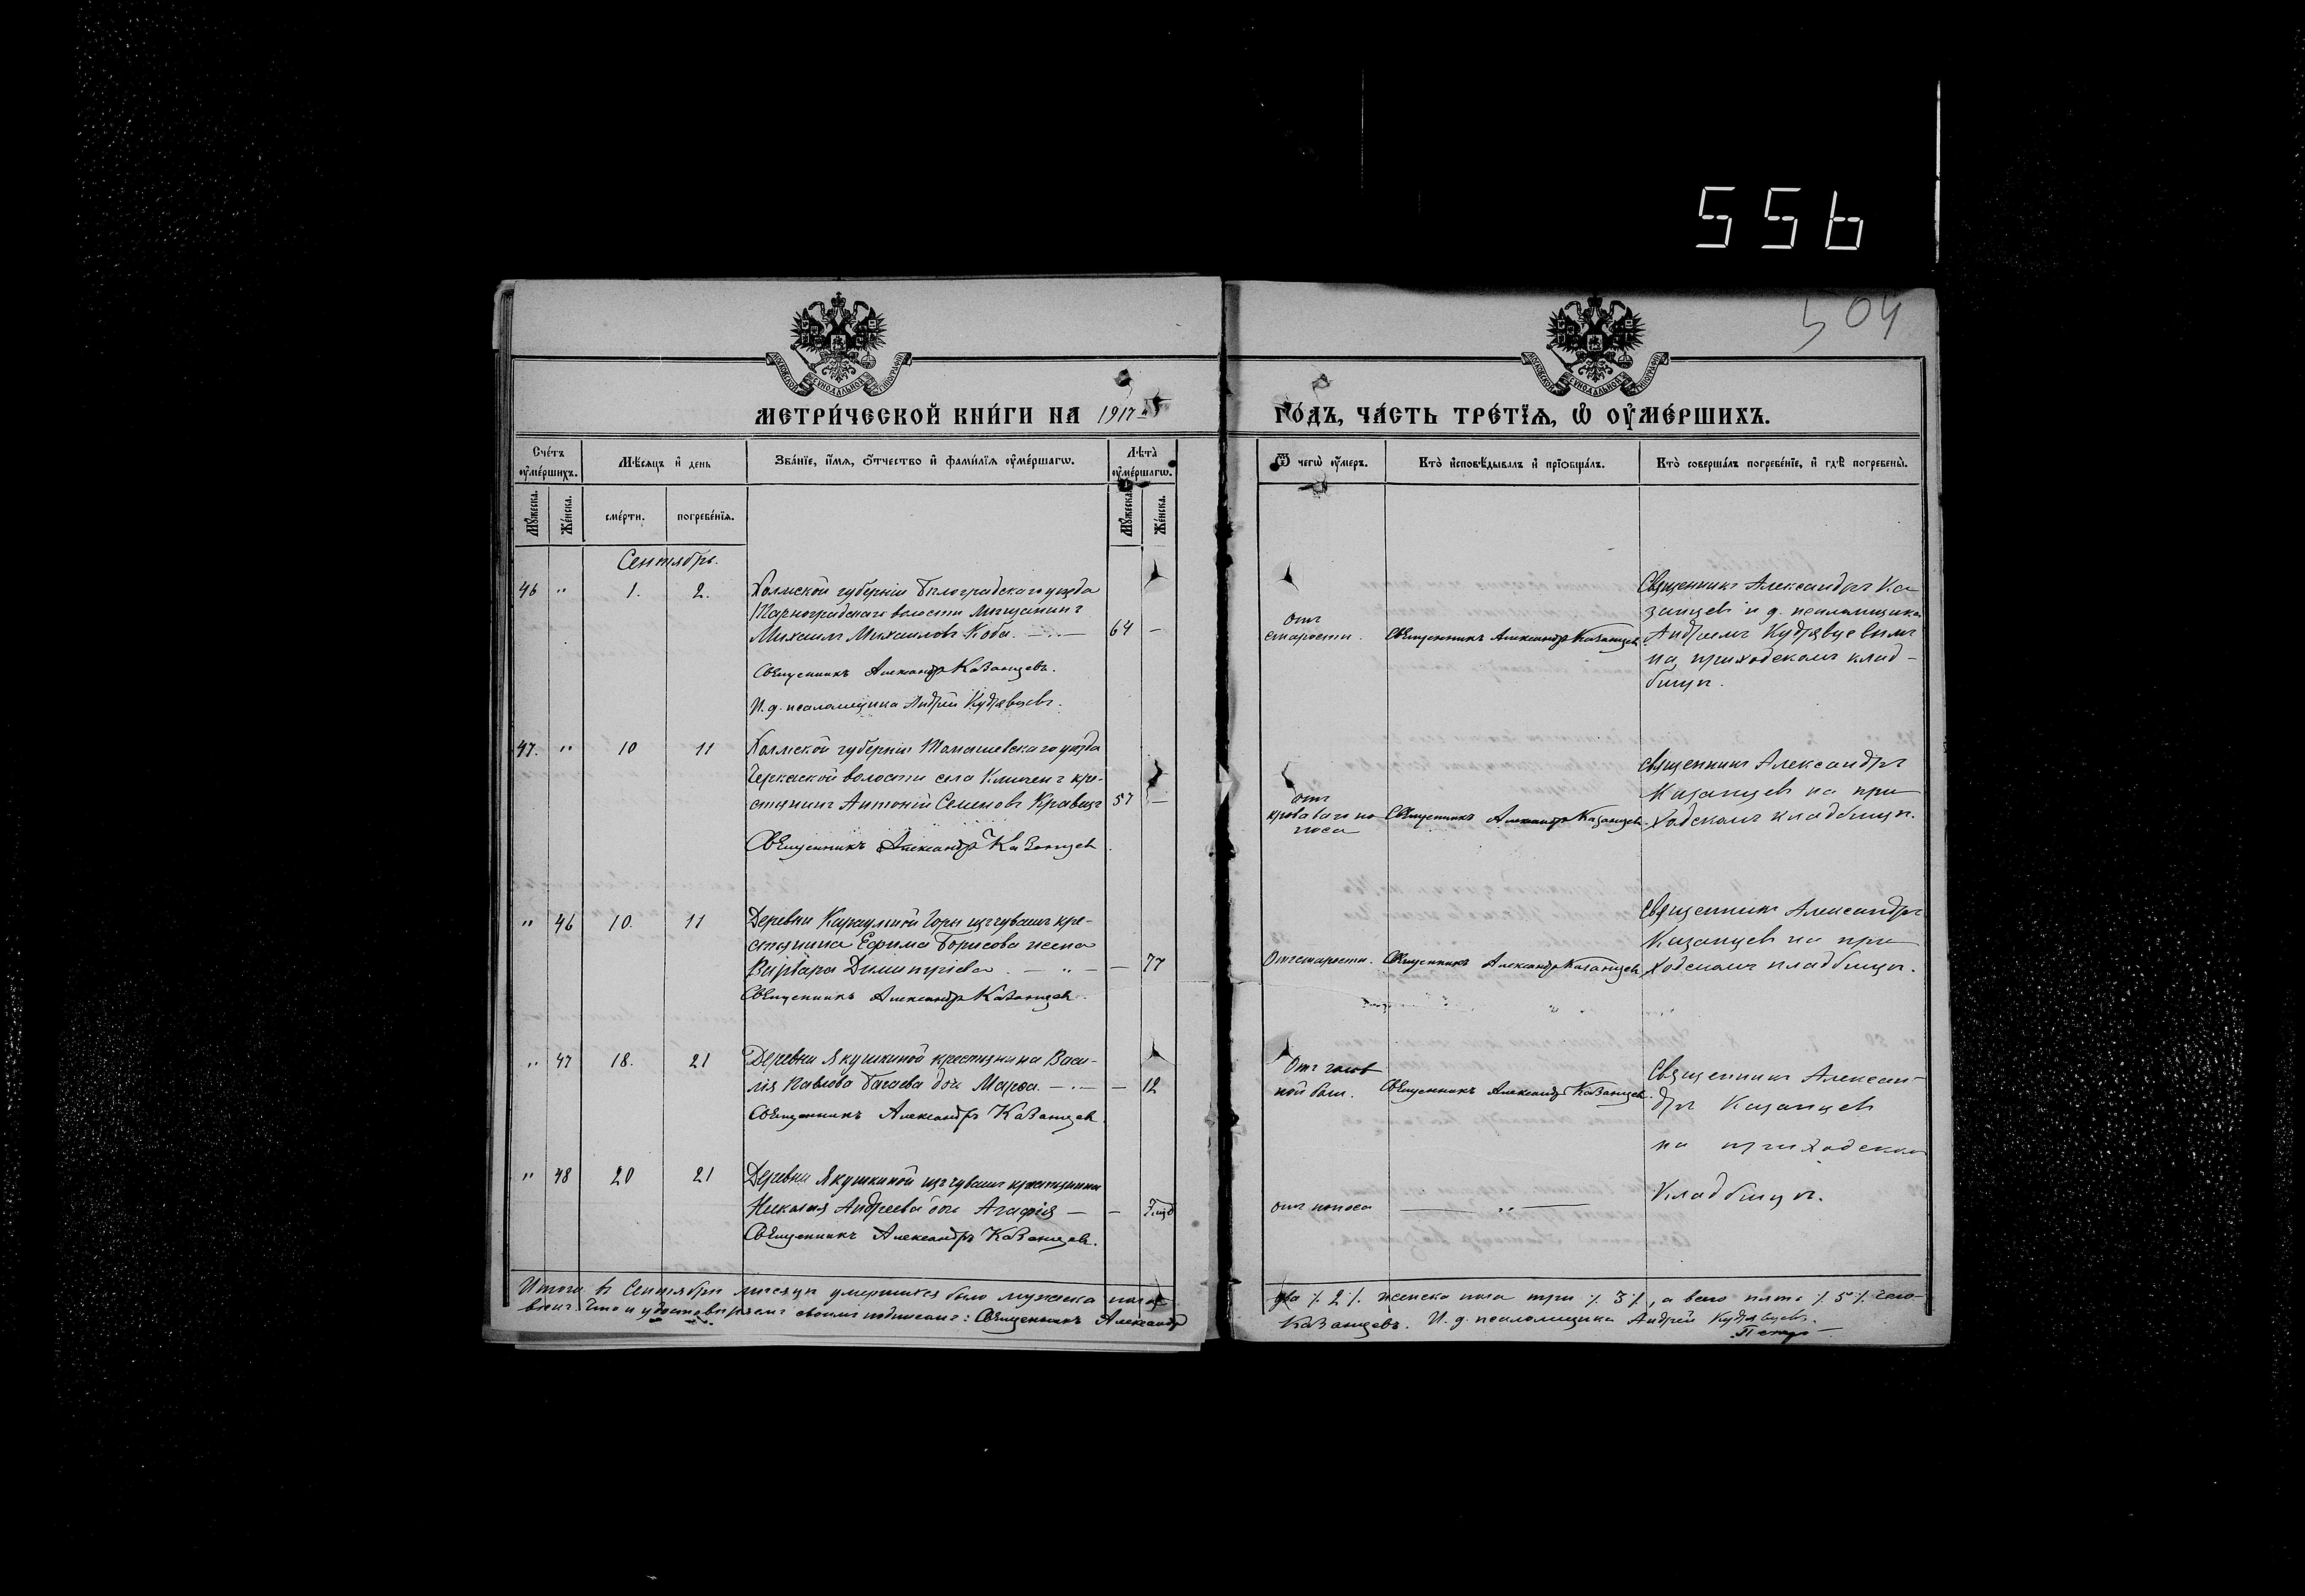 556
504
МЕТРИ́ЧЕСКОЙ КНИ́ГИ НА 1917 ГО́ДЪ, ЧА́СТЬ ТРЕ́ТЇѦ, Ѽ ОУ҆МЕ́РШИХЪ.
Сче́тъ оу҆ме́ршихъ.
Мѣ́сяцъ и҆ день
Зва́нїе, и҆́мѧ, ѻ҆́тчество и҆ фами́лїѧ оу҆ме́ршагѡ.
Лѣ́та̀ оу҆ме́ршагѡ.
Ѿ чегѡ̀ оу҆́меръ.
Кто̀ и҆сповѣ́дывалъ и҆ прїѡбща́лъ.
Кто̀ соверша́лъ погребе́нїе, и҆ гдѣ̀ погребены̀.
Мꙋ́жеска.
Же́нска.
сме́рти.
погребе́нїѧ.
Мꙋ́жеска.
Же́нска.
Сентябрь.
46 " 1. 2.
Холмской губерніи Бѣлоградскаго уѣзда
Тарноградскаго волости мѣщанинъ
Михаилъ Михаиловъ Коба. 64 —
Священникъ Александръ Казанцевъ.
И. д. псаломщика Андрей Кудрявцевъ.
отъ
старости.
Священникъ Александръ Казанцевъ
Священникъ Александръ Ка
занцевъ и д. псаломщика
Андреемъ Кудрявцевымъ
на приходскомъ клад-
бищѣ.
47. " 10 11
Холмской губерніи Томашевскаго уѣзда
Черкаской волости села кре-
стьянинъ Антоній Семеновъ Кравецъ 57 —
Священникъ Александръ Казанцевъ
отъ
кроваваго по
носа
Священникъ Александръ Казанцевъ.
Священникъ Александръ
Казанцевъ на при
ходскомъ кладбищѣ.
" 46 10. 11
Деревни Караульной Горы изъ чувашъ кре-
стьянина Ефима Борисова жена
Варвара Димитріева. — " — — 77
Священникъ Александръ Казанцевъ.
Отъ старости.
Священникъ Александръ Казанцевъ
Священникъ Александръ
Казанцевъ на при
ходскомъ кладбищѣ.
" 47 18. 21
Деревни Якушкиной крестьянина Васи-
лія Павлова Багаева дочь Марѳа. — 12
Священникъ Александръ Казанцевъ.
Отъ голов
ной боли.
Священникъ Александръ Казанцевъ.
Священникъ Алексан-
дръ Казанцевъ
на приходском
кладбищѣ.
" 48 20 21
Деревни Якушкиной изъ чувашъ крестьянина
Николая Андреева дочь Агафія — —
Священникъ Александръ Казанцевъ.
отъ поноса — " —
Итого въ Сентябрѣ мѣсяцѣ умершихъ было мужеска пола два /. 2 /. женска пола три /. 3 /., а всего пять /. 5 /. чело-
вѣкъ. Что и удостовѣряемъ своимъ подписомъ: Священникъ Александръ Казанцевъ. И. д. псаломщика Андрей Кудрявцевъ.